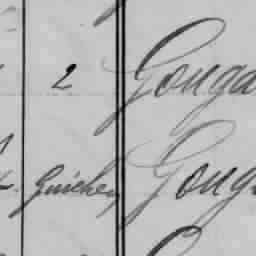 2 Gouga
Guichen Goug